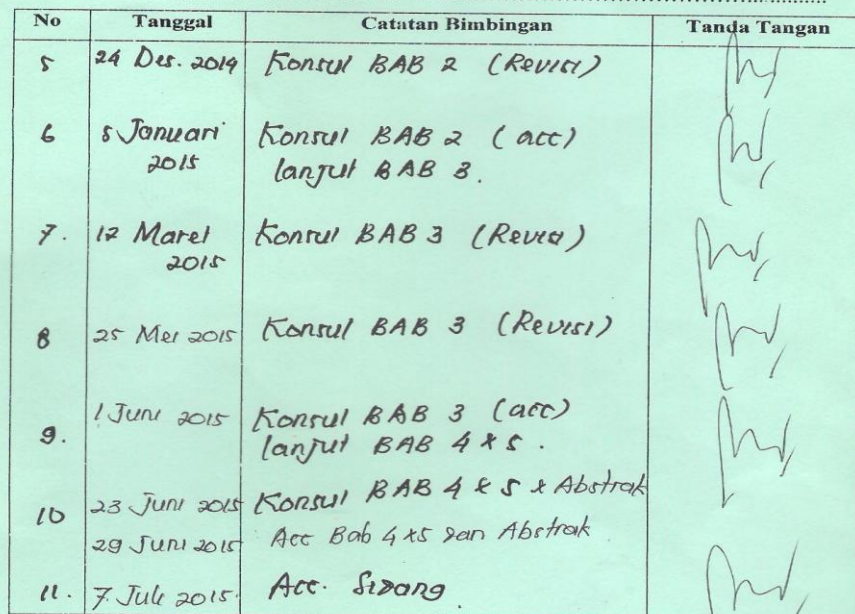 No Tanggal Catatan Bimbingan Tanda Tangan
5 24 Des. 2014 Konsul BAB 2 (Revisi)
6 5 Januari 2015 Konsul BAB 2 (acc)
lanjut BAB 3.
7. 12 Maret 2015 Konsul BAB 3 (Revisi)
8 25 Mei 2015 Konsul BAB 3 (Revisi)
9. 1 Juni 2015 Konsul BAB 3 (acc)
lanjut BAB 4 & 5.
10 23 Juni 2015 Konsul BAB 4 & 5 & Abstrak
29 Juni 2015 Acc Bab 4 &5 dan Abstrak
11. 7 Juli 2015. Acc. Sidang